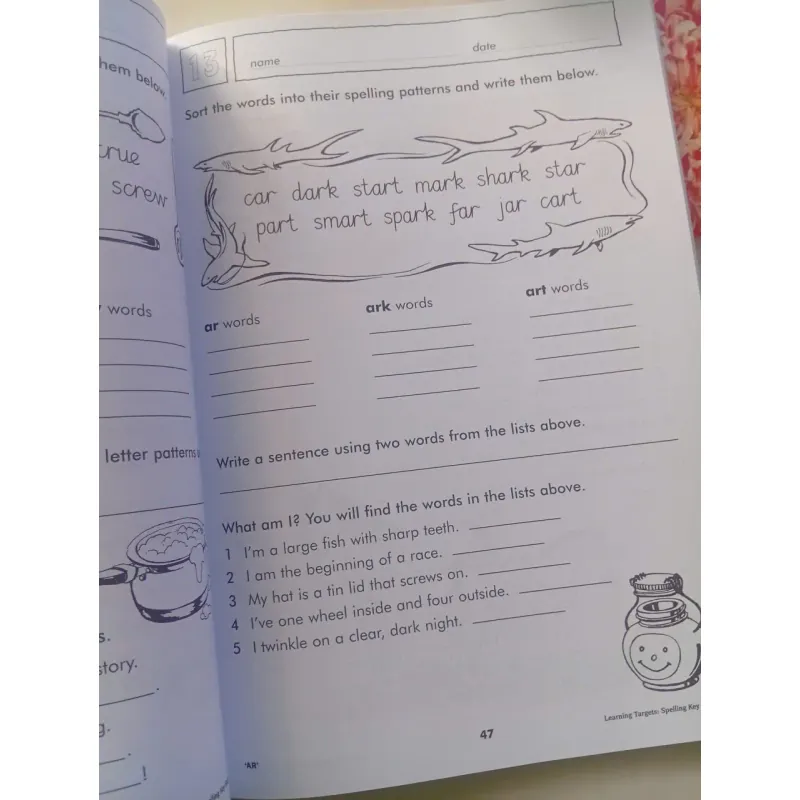 hem below.
true
screw
words
letter patterns
s.
story.
g.
!
13
name date
Sort the words into their spelling patterns and write them below.
car dark start mark shark star
part smart spark far jar cart
ar words ark words art words
Write a sentence using two words from the lists above.
What am I? You will find the words in the lists above.
1 I'm a large fish with sharp teeth.
2 I am the beginning of a race.
3 My hat is a tin lid that screws on.
4 I've one wheel inside and four outside.
5 I twinkle on a clear, dark night.
Learning Targets: Spelling Key
47
'AR'